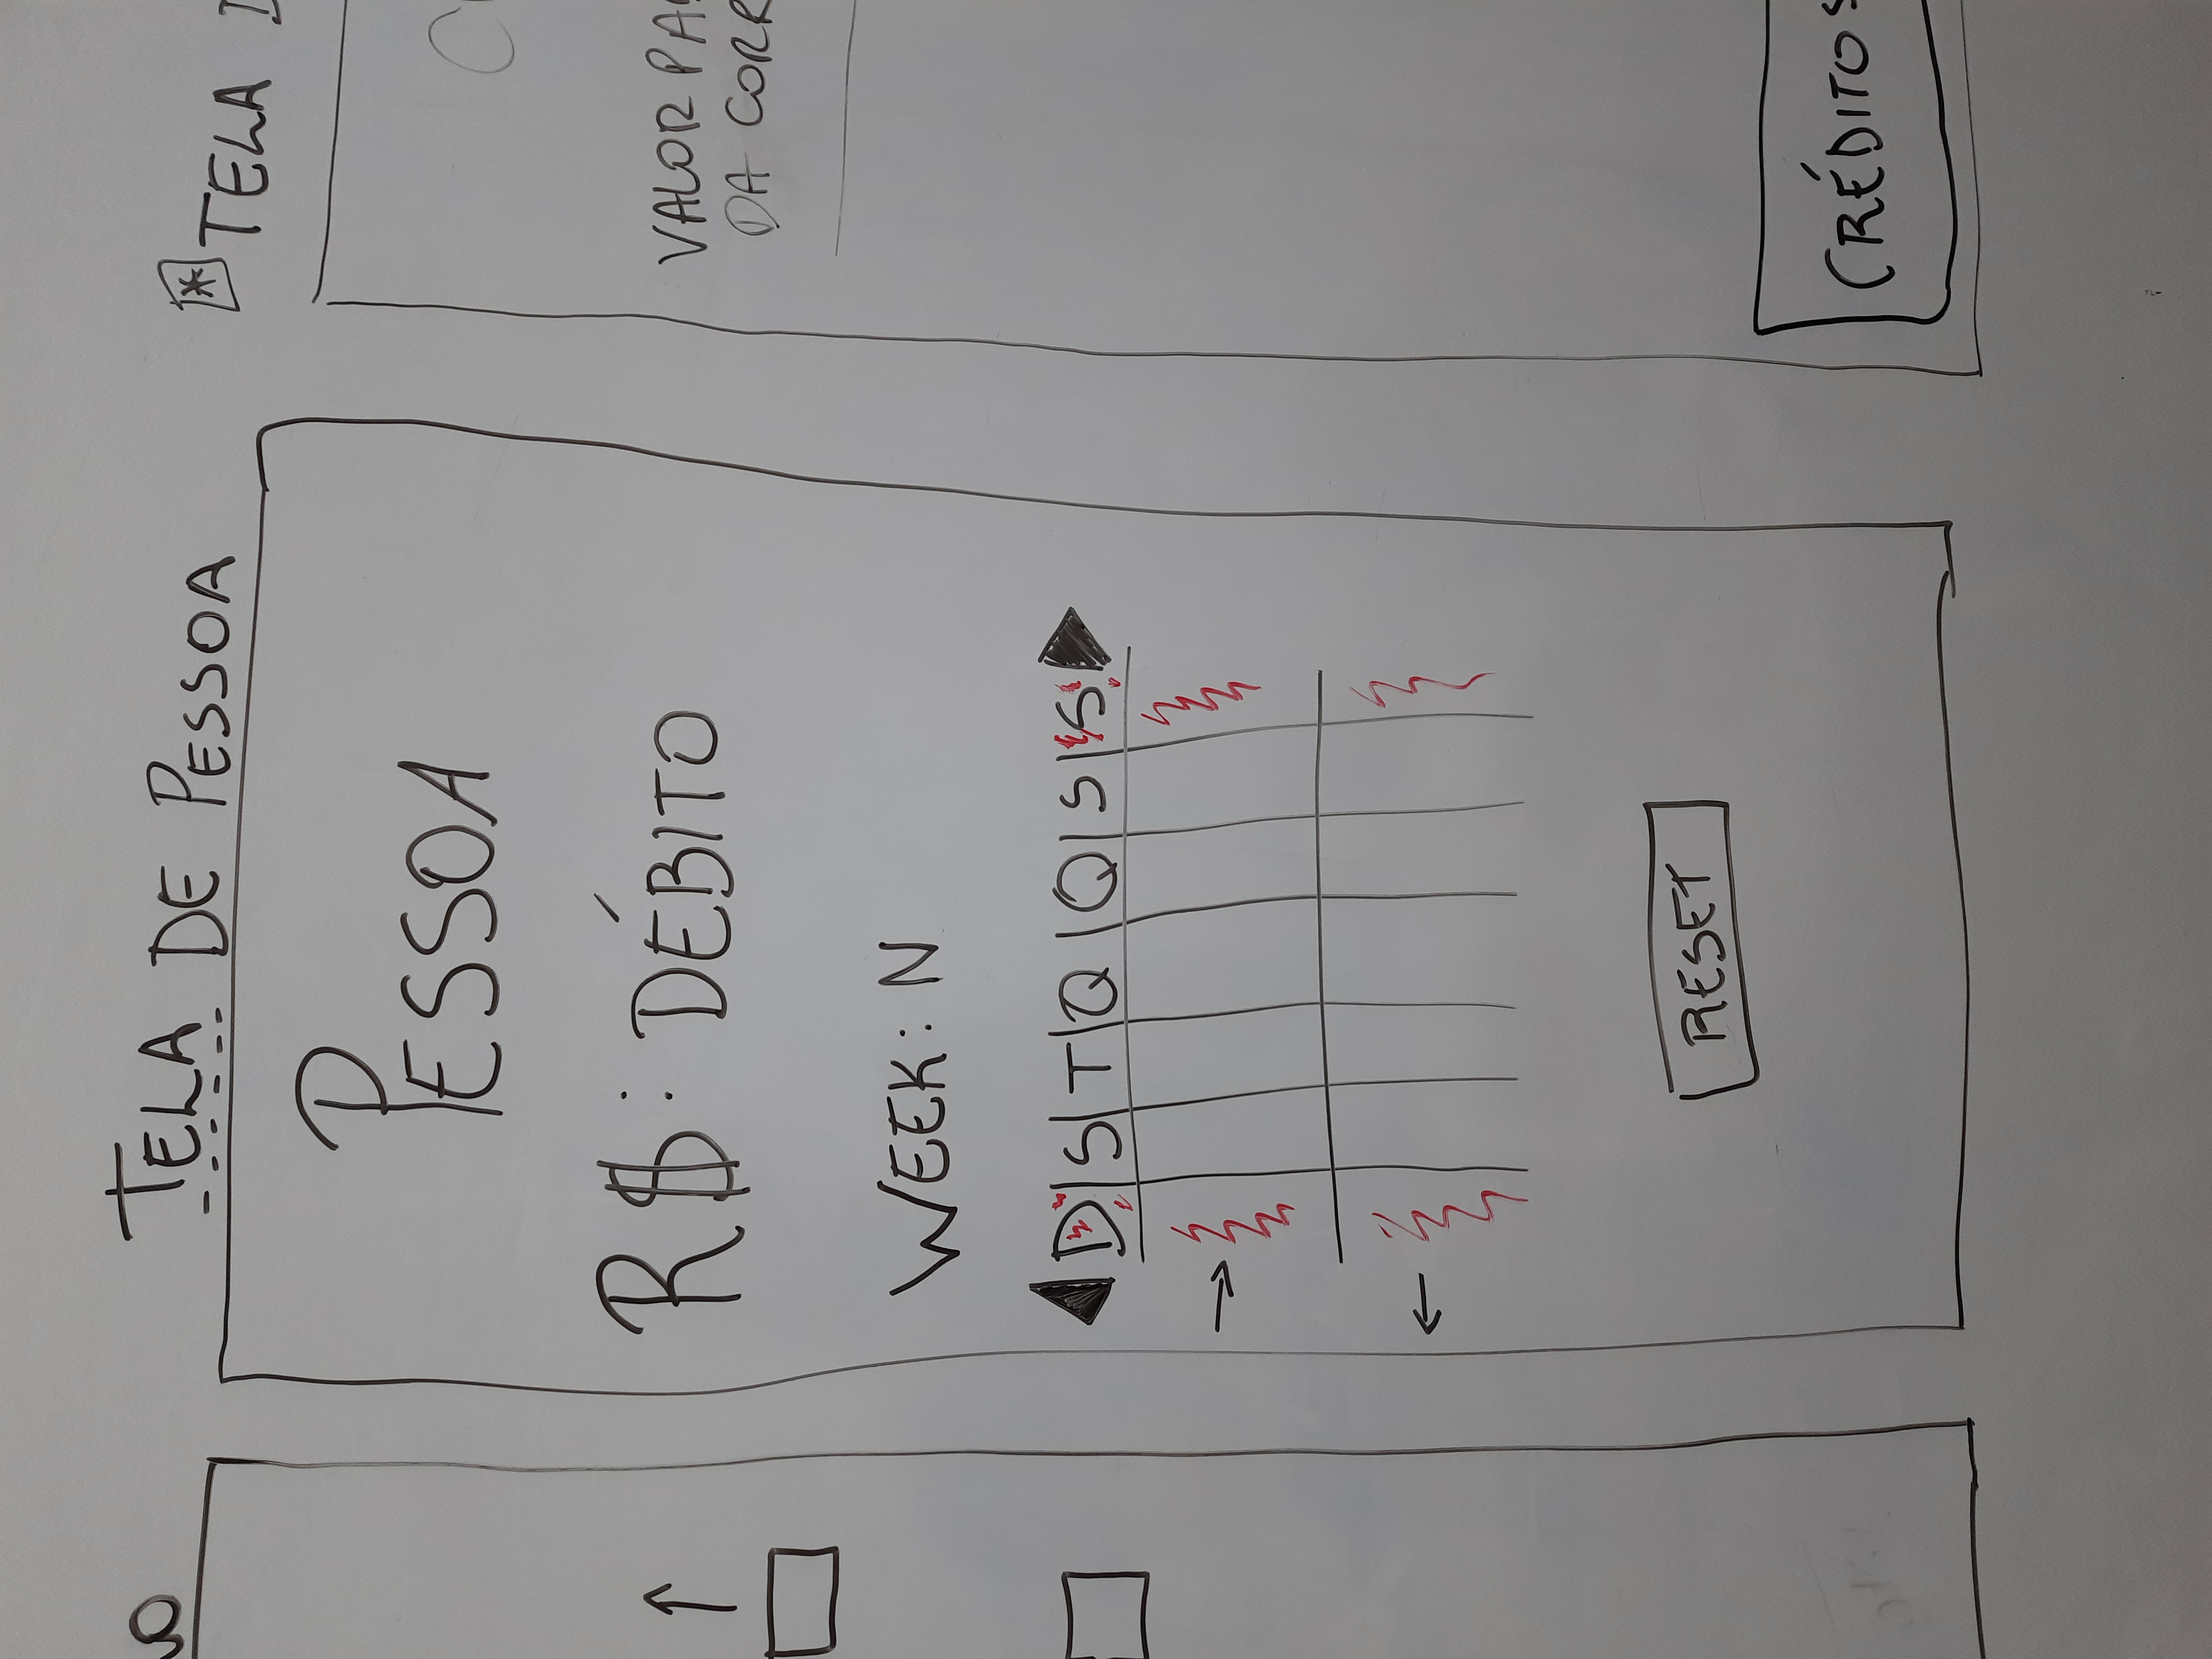 TELA DE PESSOA
PESSOA
R$: DÉBITO
WEEK: N
D S T Q Q S S
RESET
TELA
VALOR
DA
CRÉDITOS